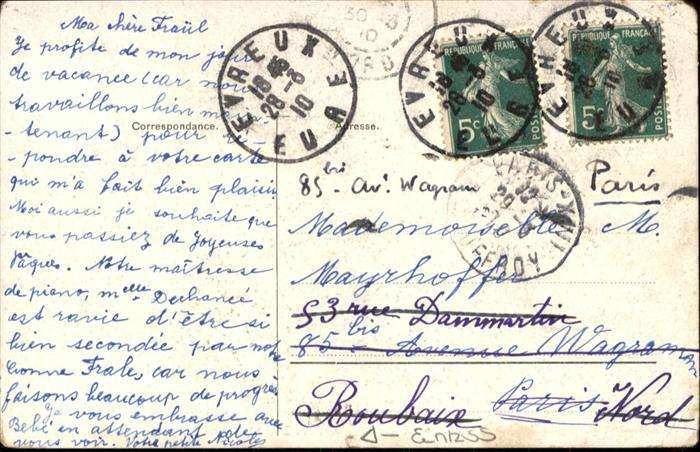 Ma chère Fraül
Je profite de mon jour
de vacance (car nous
travaillons bien main
-tenant) pour ré
-pondre à votre carte
qui m'a fait bien plaisir
Moi aussi je souhaite que
vous passiez de Joyeuses
Pâques. Notre maîtresse
de piano, melle Dechancé
est ravie d'être si
bien secondée par notre
bonne Frale, car nous
faisons beaucoup de progrès
Je vous embrasse avec
Bébé en attendant de
vous voir. Votre petite Nicole
Correspondance.
Adresse.
EVREUX
28 - 8
10
EURE
REPUBLIQUE FRANÇAISE
5c
REPUBLIQUE FRANÇAISE
5c
EVREUX
EURE
EVREUX
EURE
PARIS XVII
85 bis - Av. Wagram
Paris
Mademoiselle M.
Mayrhoffer
53 rue Dammartin
85 bis Avenue Wagram
Roubaix Paris Nord